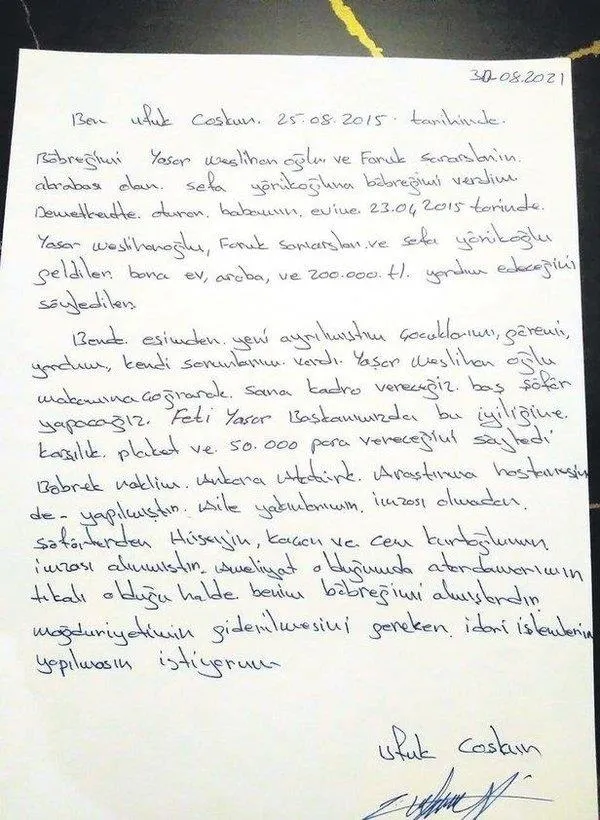 30.08.2021
Ben ufuk Coşkun. 25.08.2015. tarihinde.
Böbreğimi Yaşar weslihan oğlu ve Faruk sarıarslanin.
akrabası olan. sefa yörükoğluna böbreğimi verdim
Demetkentte. oturan. babamın. evine 23.04.2015 tarinde.
Yaşar weslihanoğlu, Faruk sarıarslan. ve sefa yörükoğlu
geldiler. bana ev, araba, ve 200.000. tl. yardım edeceğini
söylediler.
Bende. eşimden. yeni ayrılmıştım çocuklarımı, göremi,
yordum, kendi sorunlarım. vardı. Yaşar weslihan oğlu
makamına çoğırarak. sana kadro vereceğiz. baş şöför
yapacağız. Feti Yaşar Başkanımızda bu iyiliğine.
karşılık. plaket ve. 50.000 para vereceğini söyledi
Böbrek naklim. Ankara Atatürk. Araştırma hastanesin
de- yapılmıştır. Aile yakınlarımın. imzası olmadan.
şöförlerden Hüseyin, ve cem kurtoğlunun.
imzası alınmıştır. Ameliyat olduğumda atardamarımın
tıkalı olduğu halde benim böbreğimi almışlardır
mağduriyetimin giderilmesini gereken. idari işlemlerin
yapılmasın istiyorum
ufuk coşkun